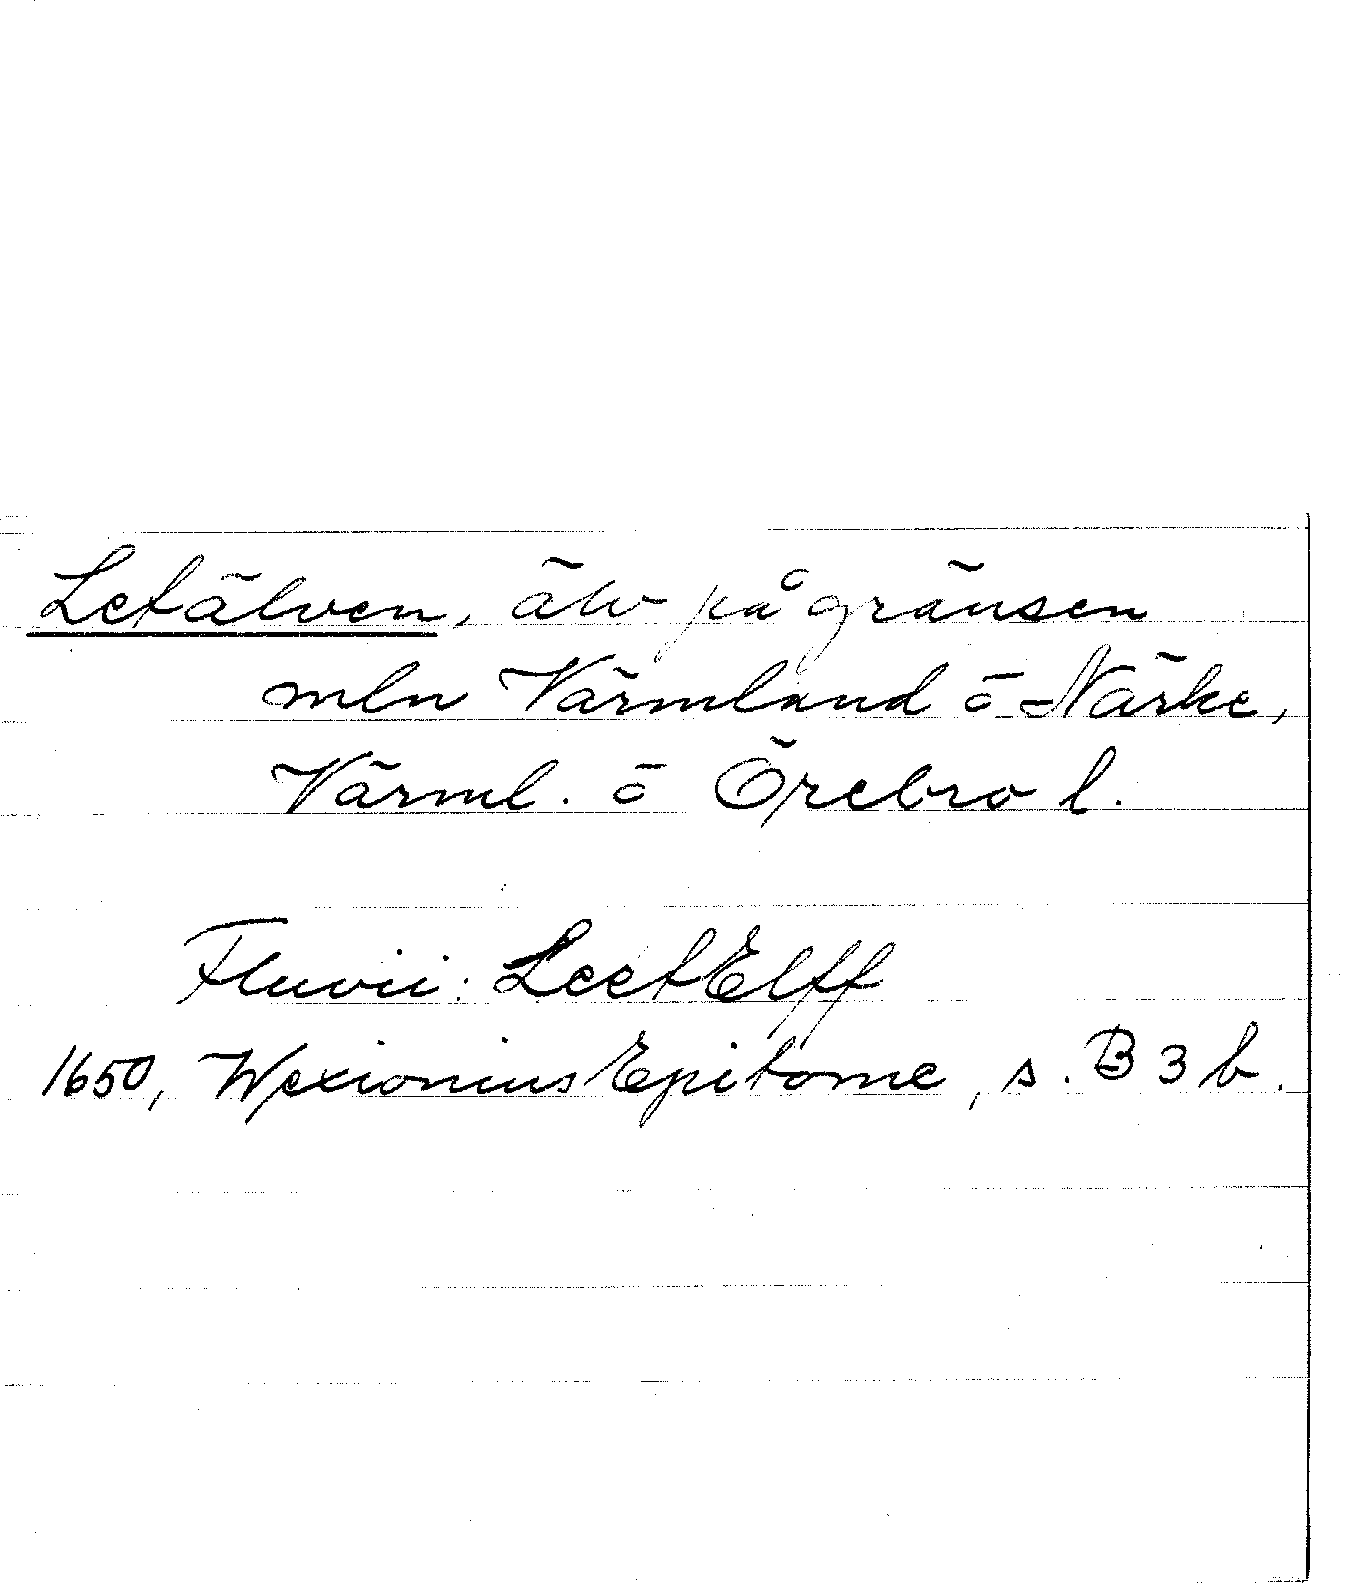 Letälven, älv på gränsen
mln Värmland ö Närke,
Värml. ö Örebro l.
Fluvii: LeetElff
1650, Wexionius Epitome, s. B 3 b.